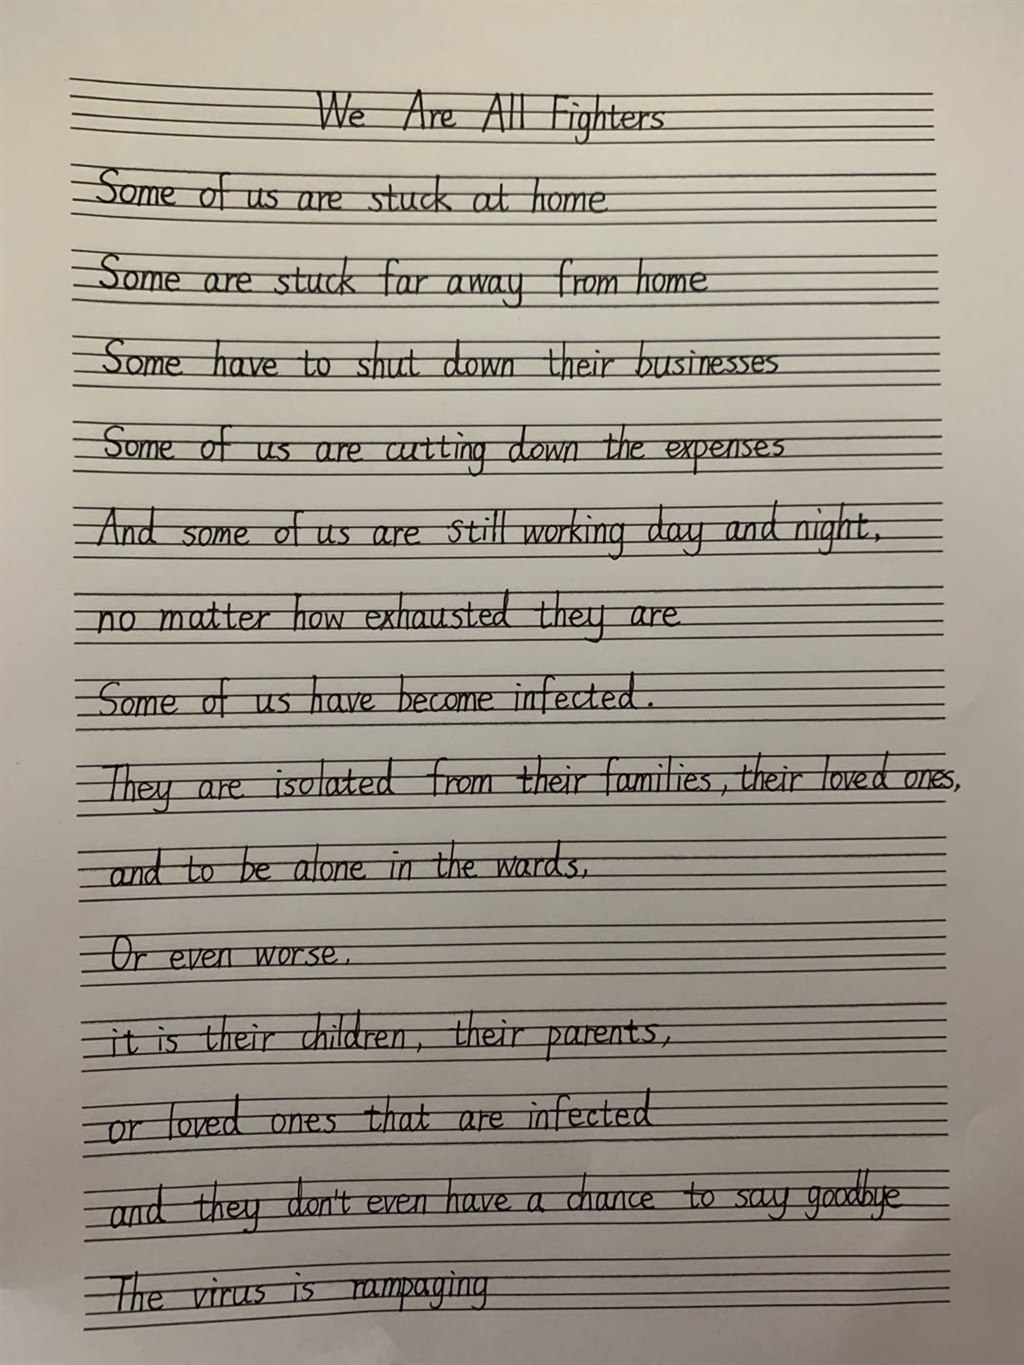 We Are All Fighters
Some of us are stuck at home
Some are stuck far away from home
Some have to shut down their businesses
Some of us are cutting down the expenses
And some of us are still working day and night,
no matter how exhausted they are
Some of us have become infected.
They are isolated from their families, their loved ones,
and to be alone in the wards,
Or even worse,
it is their children, their parents,
or loved ones that are infected
and they don't even have a chance to say goodbye
The virus is rampaging